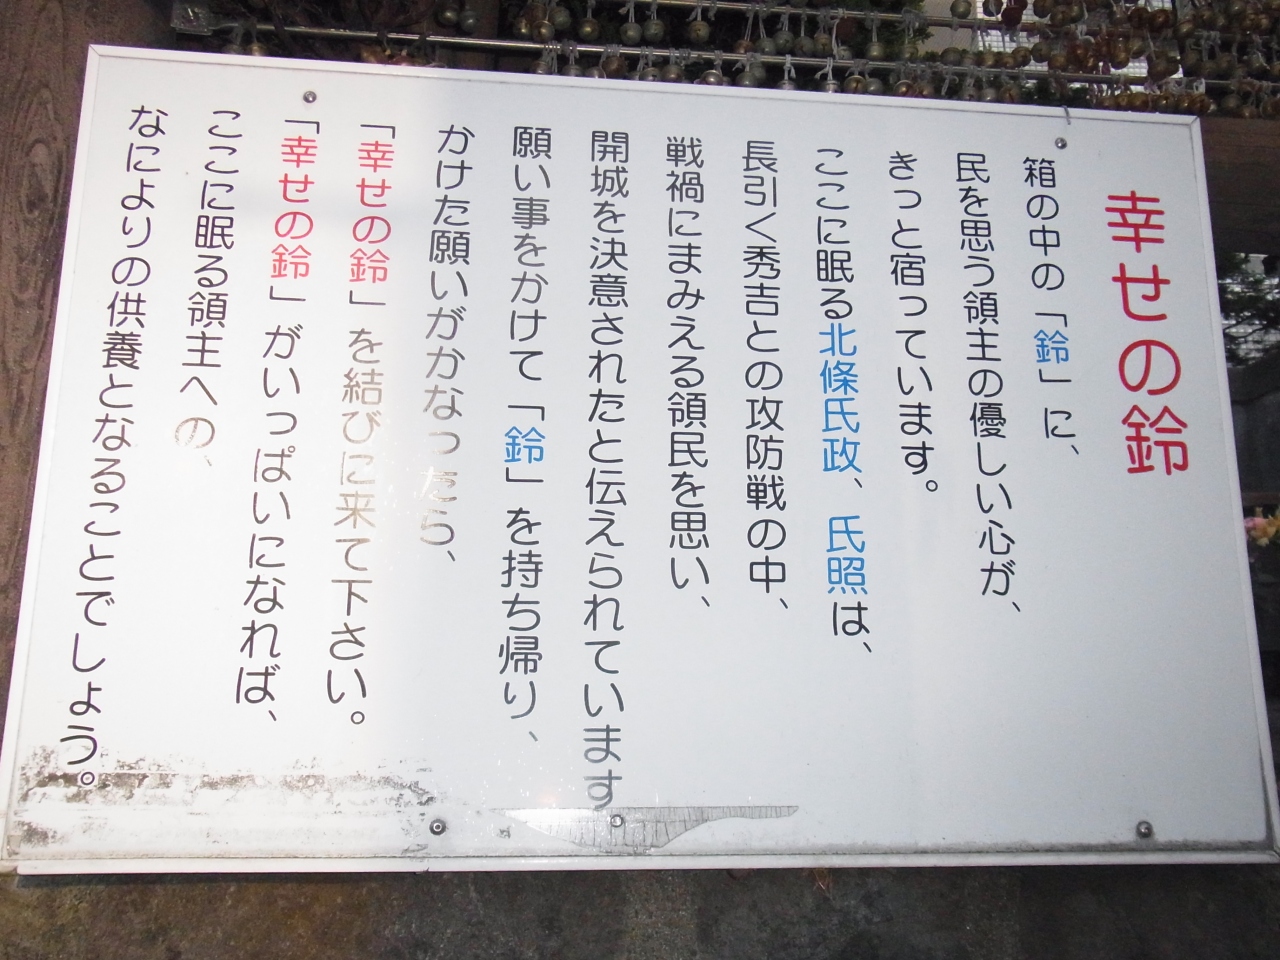 幸せの鈴
箱の中の「鈴」に、
民を思う領主の優しい心が、
きっと宿っています。
ここに眠る北條氏政、氏照は、
長引く秀吉との攻防戦の中、
戦禍にまみえる領民を思い、
開城を決意されたと伝えられています
願い事をかけて「鈴」を持ち帰り、
かけた願いがかなったら、
「幸せの鈴」を結びに来て下さい。
「幸せの鈴」がいっぱいになれば、
ここに眠る領主への、
なによりの供養となることでしょう。